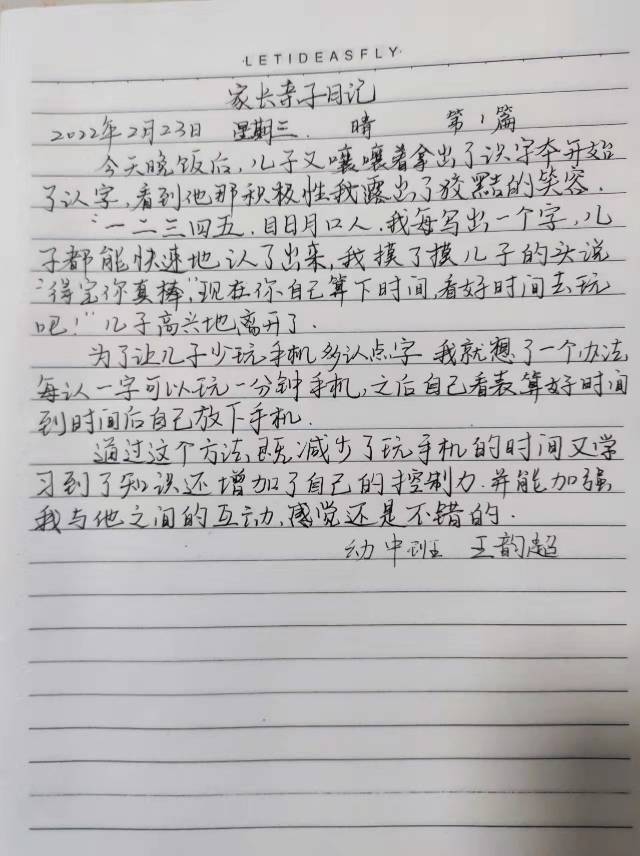 LETIDEASFLY
家长亲子日记
2022年2月23日 星期三. 晴 第1篇
今天晚饭后,儿子又嚷嚷着拿出了识字本开始
了认字,看到他那积极性我露出了狡黠的笑容.
"一二三四五,目日月口人,我每写出一个字,儿
子都能快速地认了出来,我摸了摸儿子的头说
:"得宝你真棒,"现在你自己算下时间,看好时间去玩
吧!"儿子高兴地离开了.
为了让儿子少玩手机多认点字 我就想了一个办法
每认一字可以玩一分钟手机,之后自己看表算好时间
到时间后自己放下手机.
通过这个方法,既减步了玩手机的时间又学
习到了知识还增加了自己的控制力.并能加强
我与他之间的互动,感觉还是不错的.
幼中班 王韵超